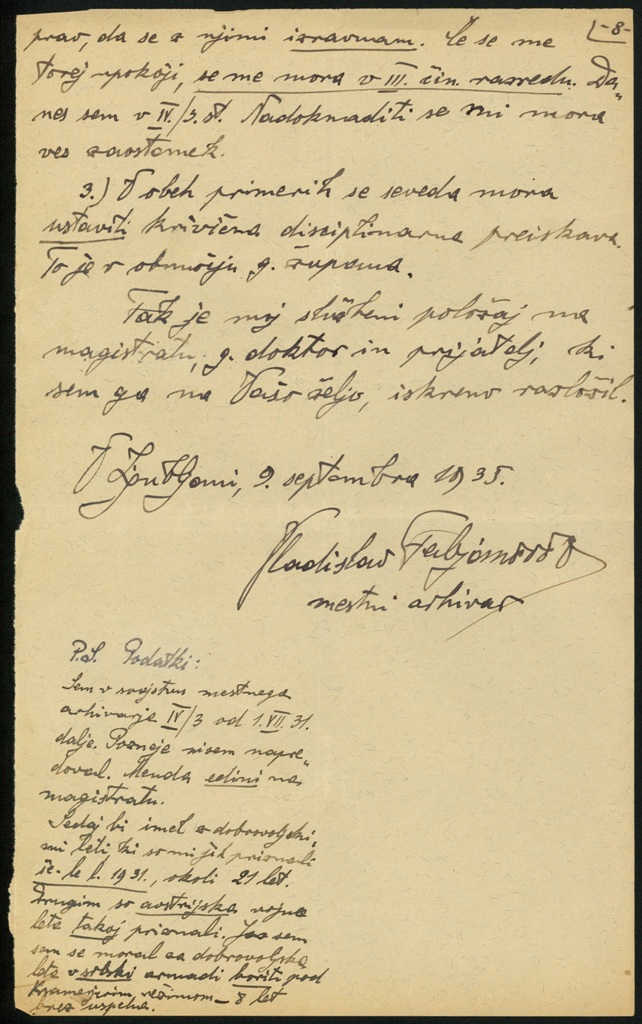 -8-
prav, da se z njimi izravnam. Če se me
torej upokoji, se me mora v III. čin. razredu. Da„
nes sem v IV./3. st. Nadoknaditi se mi mora
ves zaostanek.
3.) V obeh primerih se seveda mora
ustaviti krivična disciplinarna preiskava.
To je v območju g. župana.
Tak je moj službeni položaj na
magistratu, g. doktor in prijatelj, ki
sem ga na Vašo željo, iskreno razložil.
V Ljubljani, 9. septembra 1935.
Vladislav Fabjančič
mestni arhivar
P.S. Podatki:
Sem v svojstvu mestnega
arhivarja IV/3 od 1.VII.31.
dalje. Pozneje nisem napre„
doval. Menda edini na
magistratu.
Sedaj bi imel z dobrovoljski„
mi leti, ki so mi jih priznali
še le l. 1931., okoli 21 let.
Drugim so avstrijska vojna
leta takoj priznali. Jaz sem
sem se moral za dobrovoljska
leta v srbski armadi boriti pod
Kramerjevim režimom - 8 let
brez uspeha.